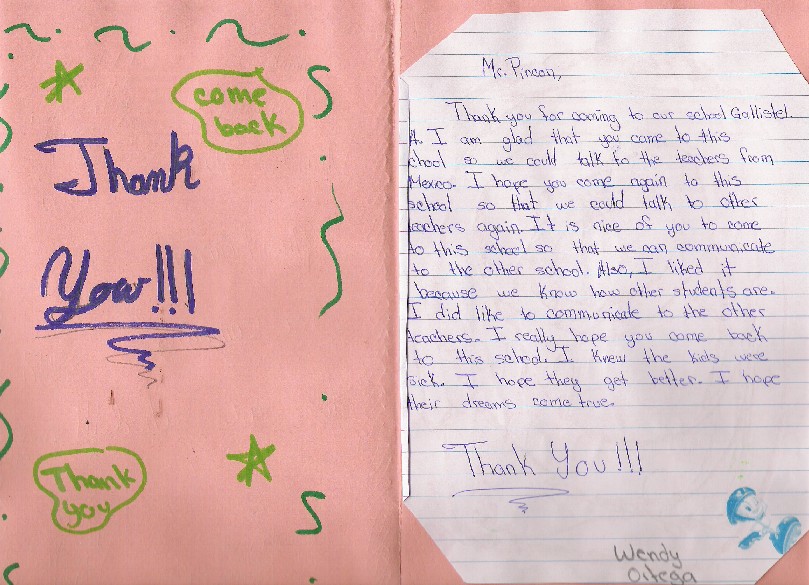 come
back
Thank
You!!!
Thank
you
Mr. Pincon,
Thank you for coming to our school Gallistel.
I am glad that you came to this
school so we could talk to the teachers from
Mexico. I hope you come again to this
school so that we could talk to other
teachers again. It is nice of you to come
to this school so that we can communicate
to the other school. Also, I liked it
because we know how other students are.
I did like to communicate to the other
teachers. I really hope you come back
to this school. I knew the kids were
sick. I hope they get better. I hope
their dreams come true.
Thank You!!!
Wendy
Ortega